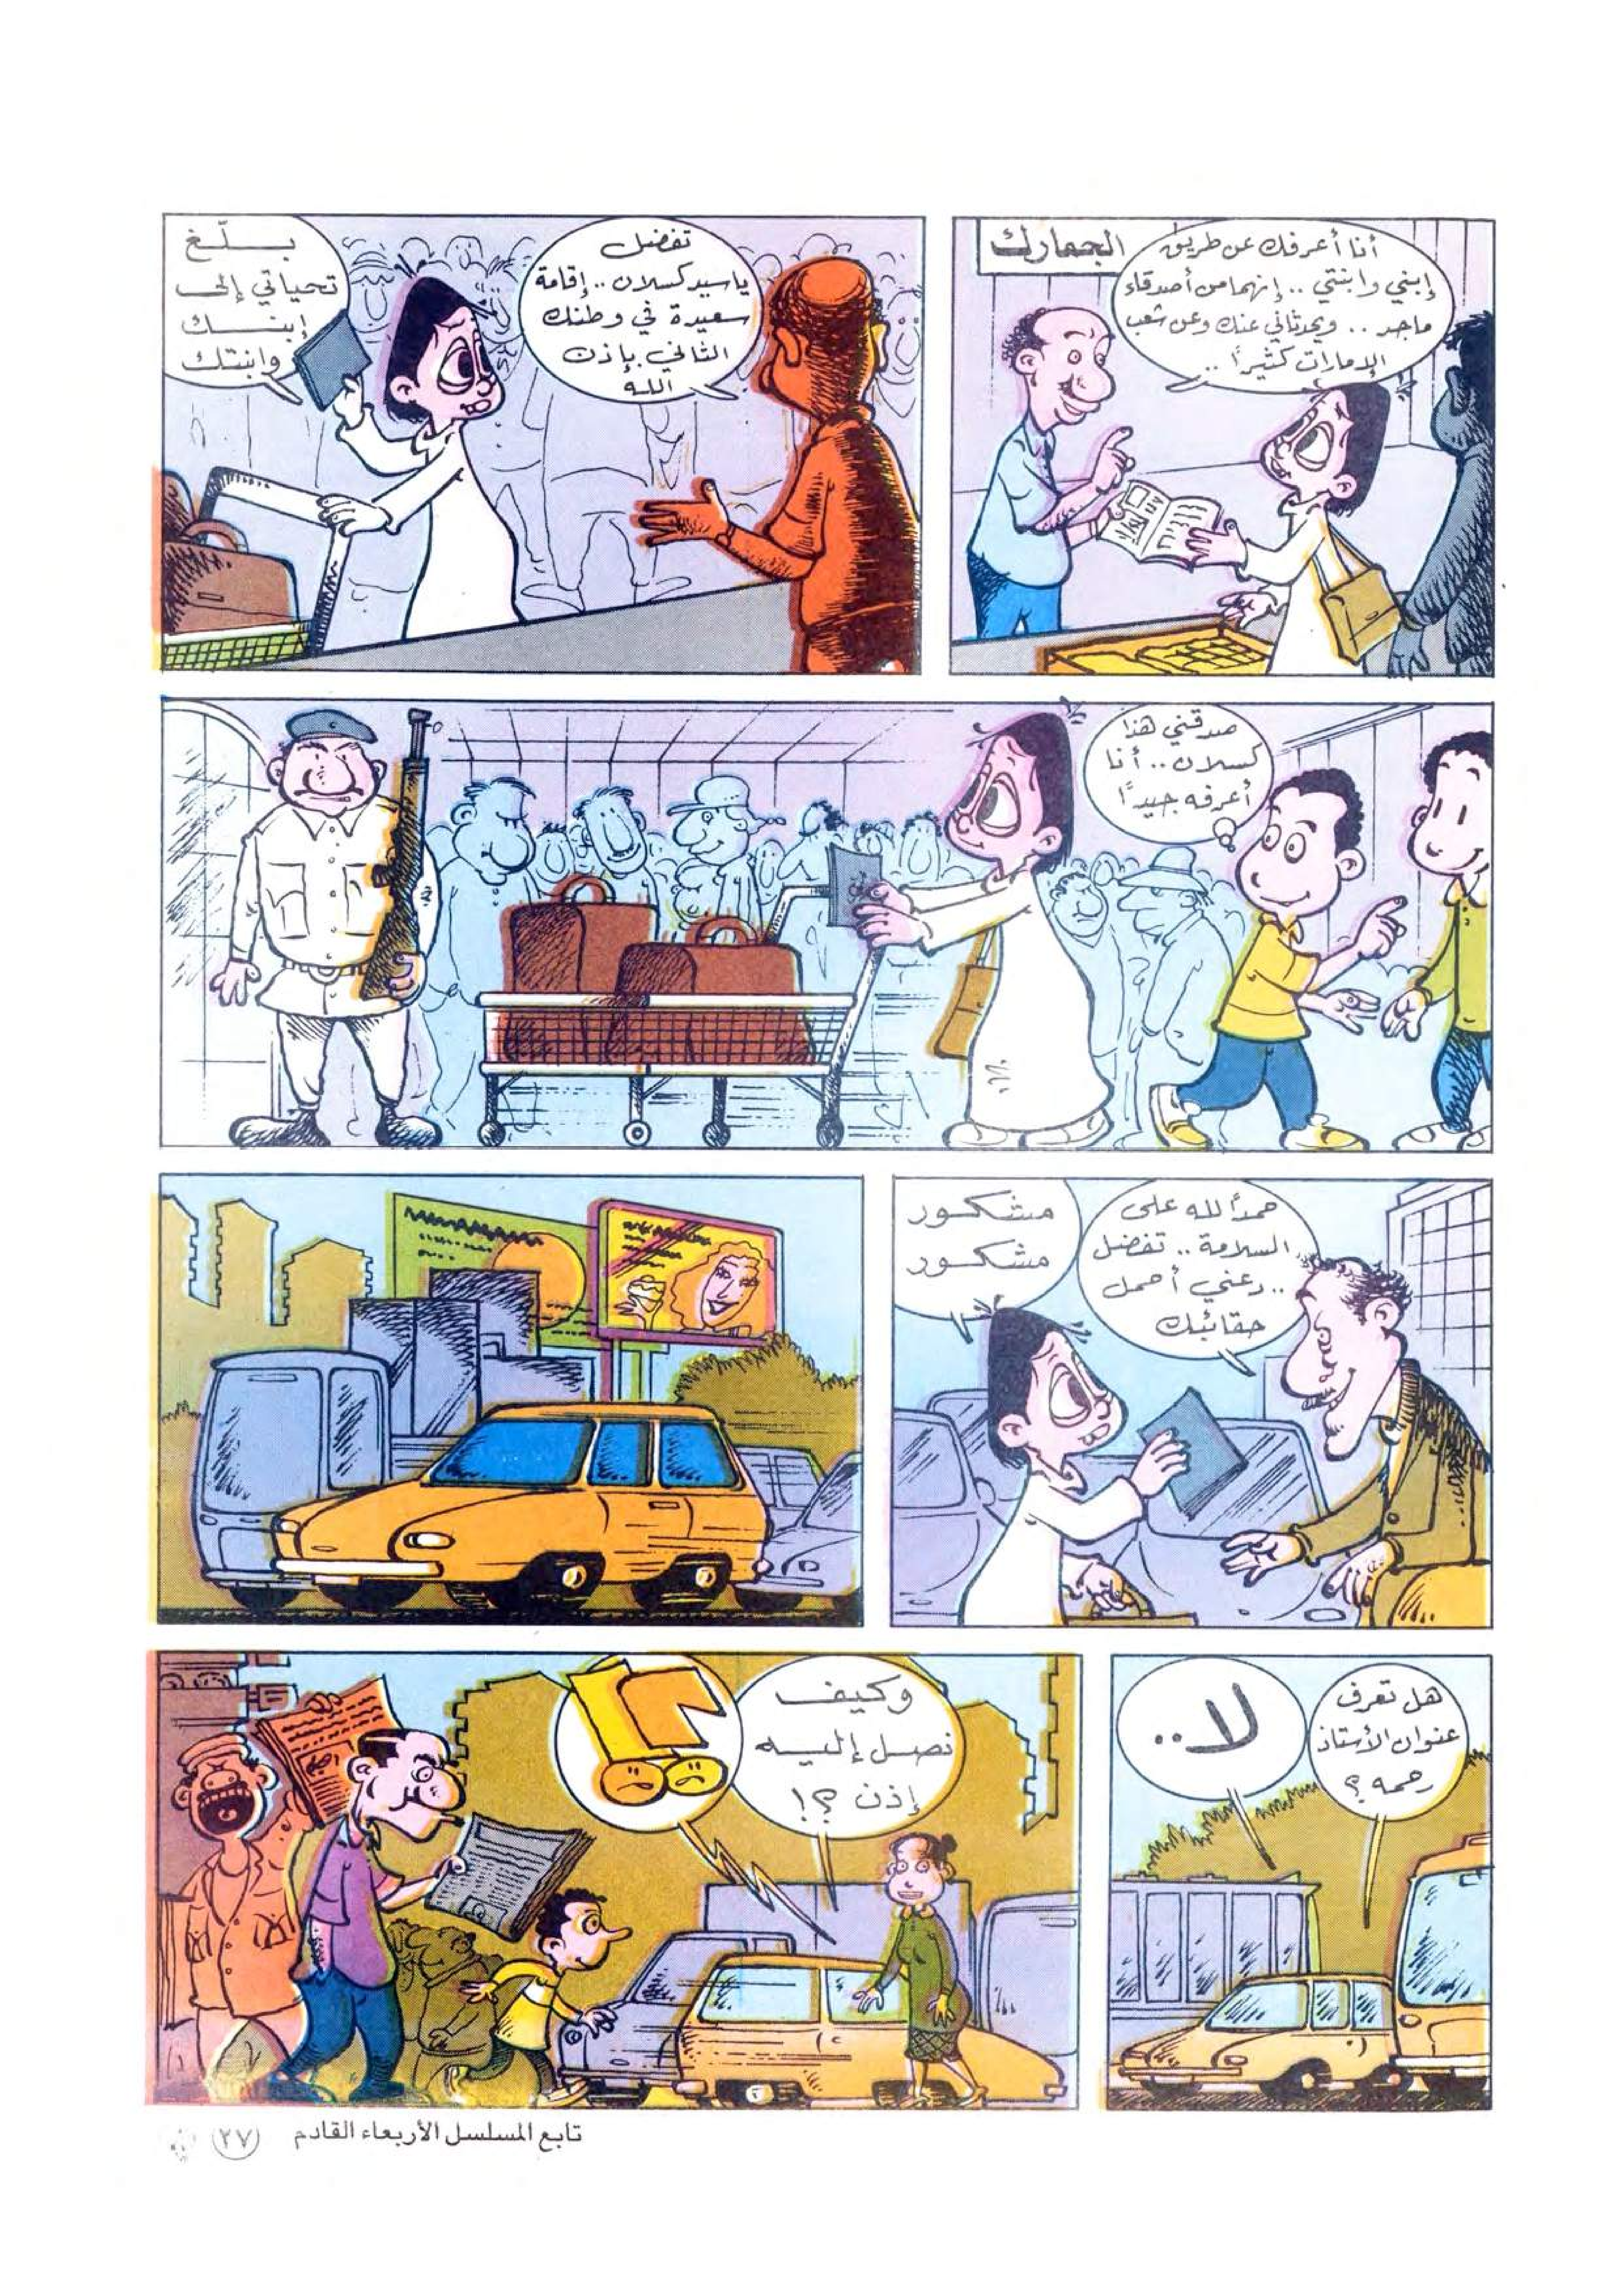 الجمارك
أنا أعرفك عن طريق
إبني وابنتي .. إنهما من أصدقاء
ماجد .. ويحدثاني عنك وعن شعب
الإمارات كثيرًا ..
تفضل
ياسيد كسلان .. إقامة
سعيدة في وطنك
الثاني بإذن
الله
بلّغ
تحياتي إلى
إبنك
وابنتك
صدقني هذا
كسلان .. أنا
أعرفه جيدًا
حمدًا لله على
السلامة .. تفضل
.. دعني أحمل
حقائبك
مشكور
مشكور
هل تعرف
عنوان الأستاذ
رحمه ؟
لا ..
وكيف
نصل إليه
إذن ؟!
تابع المسلسل الأربعاء القادم
٢٧